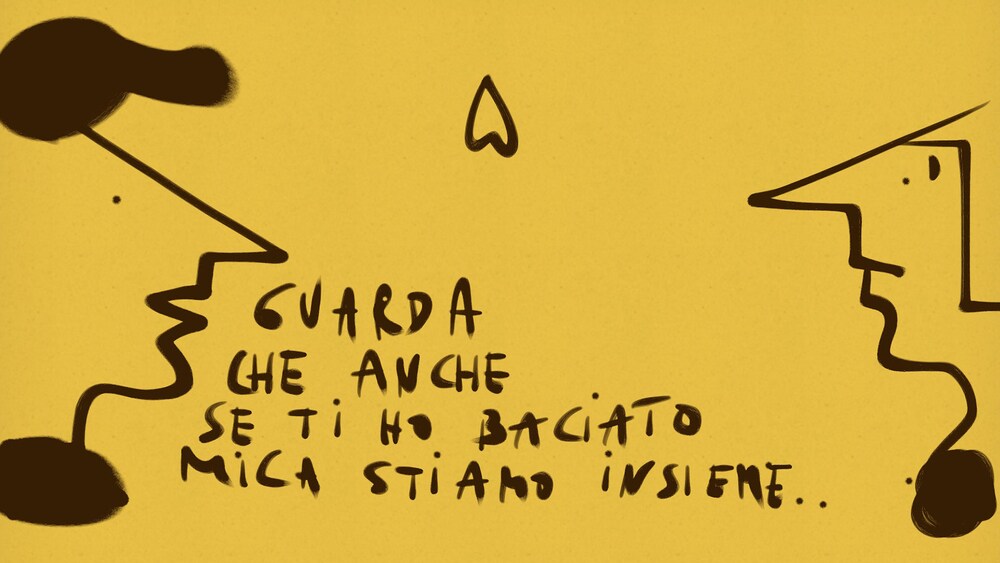 GUARDA
CHE ANCHE
SE Ti HO BACiATO
MiCA STiAMO iNSIEME..